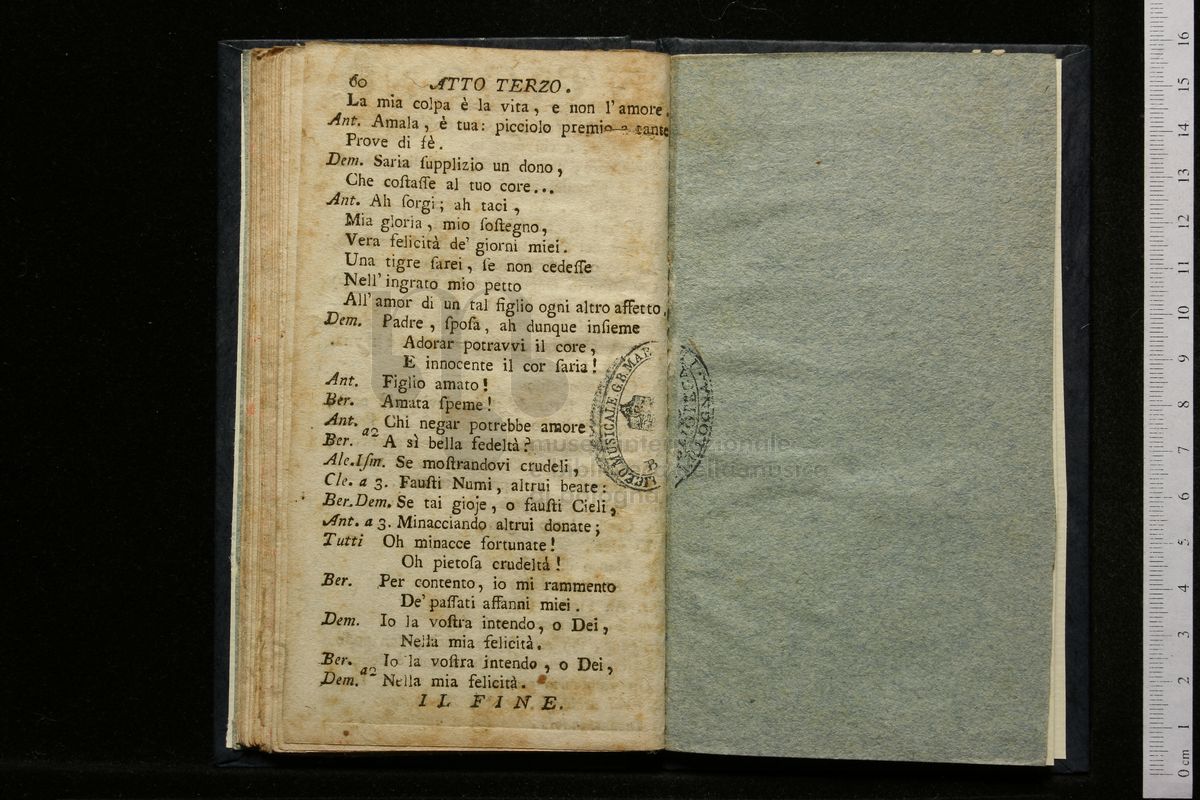 60 ATTO TERZO.
La mia colpa è la vita, e non l'amore.
Ant. Amala, è tua: picciolo premio a tante
Prove di fè.
Dem. Saria ſupplizio un dono,
Che coſtaſſe al tuo core...
Ant. Ah ſorgi; ah taci,
Mia gloria, mio ſoſtegno,
Vera felicità de' giorni miei.
Una tigre ſarei, ſe non cedeſſe
Nell'ingrato mio petto
All'amor di un tal figlio ogni altro affetto.
Dem. Padre, ſpoſa, ah dunque inſieme
Adorar potravvi il core,
E innocente il cor ſaria!
Ant. Figlio amato!
Ber. Amata ſpeme!
Ant. a2 Chi negar potrebbe amore
Ber. A sì bella fedeltà?
Ale.Iſm. Se moſtrandovi crudeli,
Cle. a 3. Fauſti Numi, altrui beate:
Ber.Dem. Se tai gioje, o fauſti Cieli,
Ant. a 3. Minacciando altrui donate;
Tutti Oh minacce fortunate!
Oh pietoſa crudeltà!
Ber. Per contento, io mi rammento
De' paſſati affanni miei.
Dem. Io la voſtra intendo, o Dei,
Nella mia felicità.
Ber. a2 Io la voſtra intendo, o Dei,
Dem. Nella mia felicità.
IL FINE.
LICEO MUSICALE G.B. MAR
BIBLIOTECA
B
museo internazionale
e biblioteca della musica
di bologna
16
15
14
13
12
11
10
9
8
7
6
5
4
3
2
1
0 cm